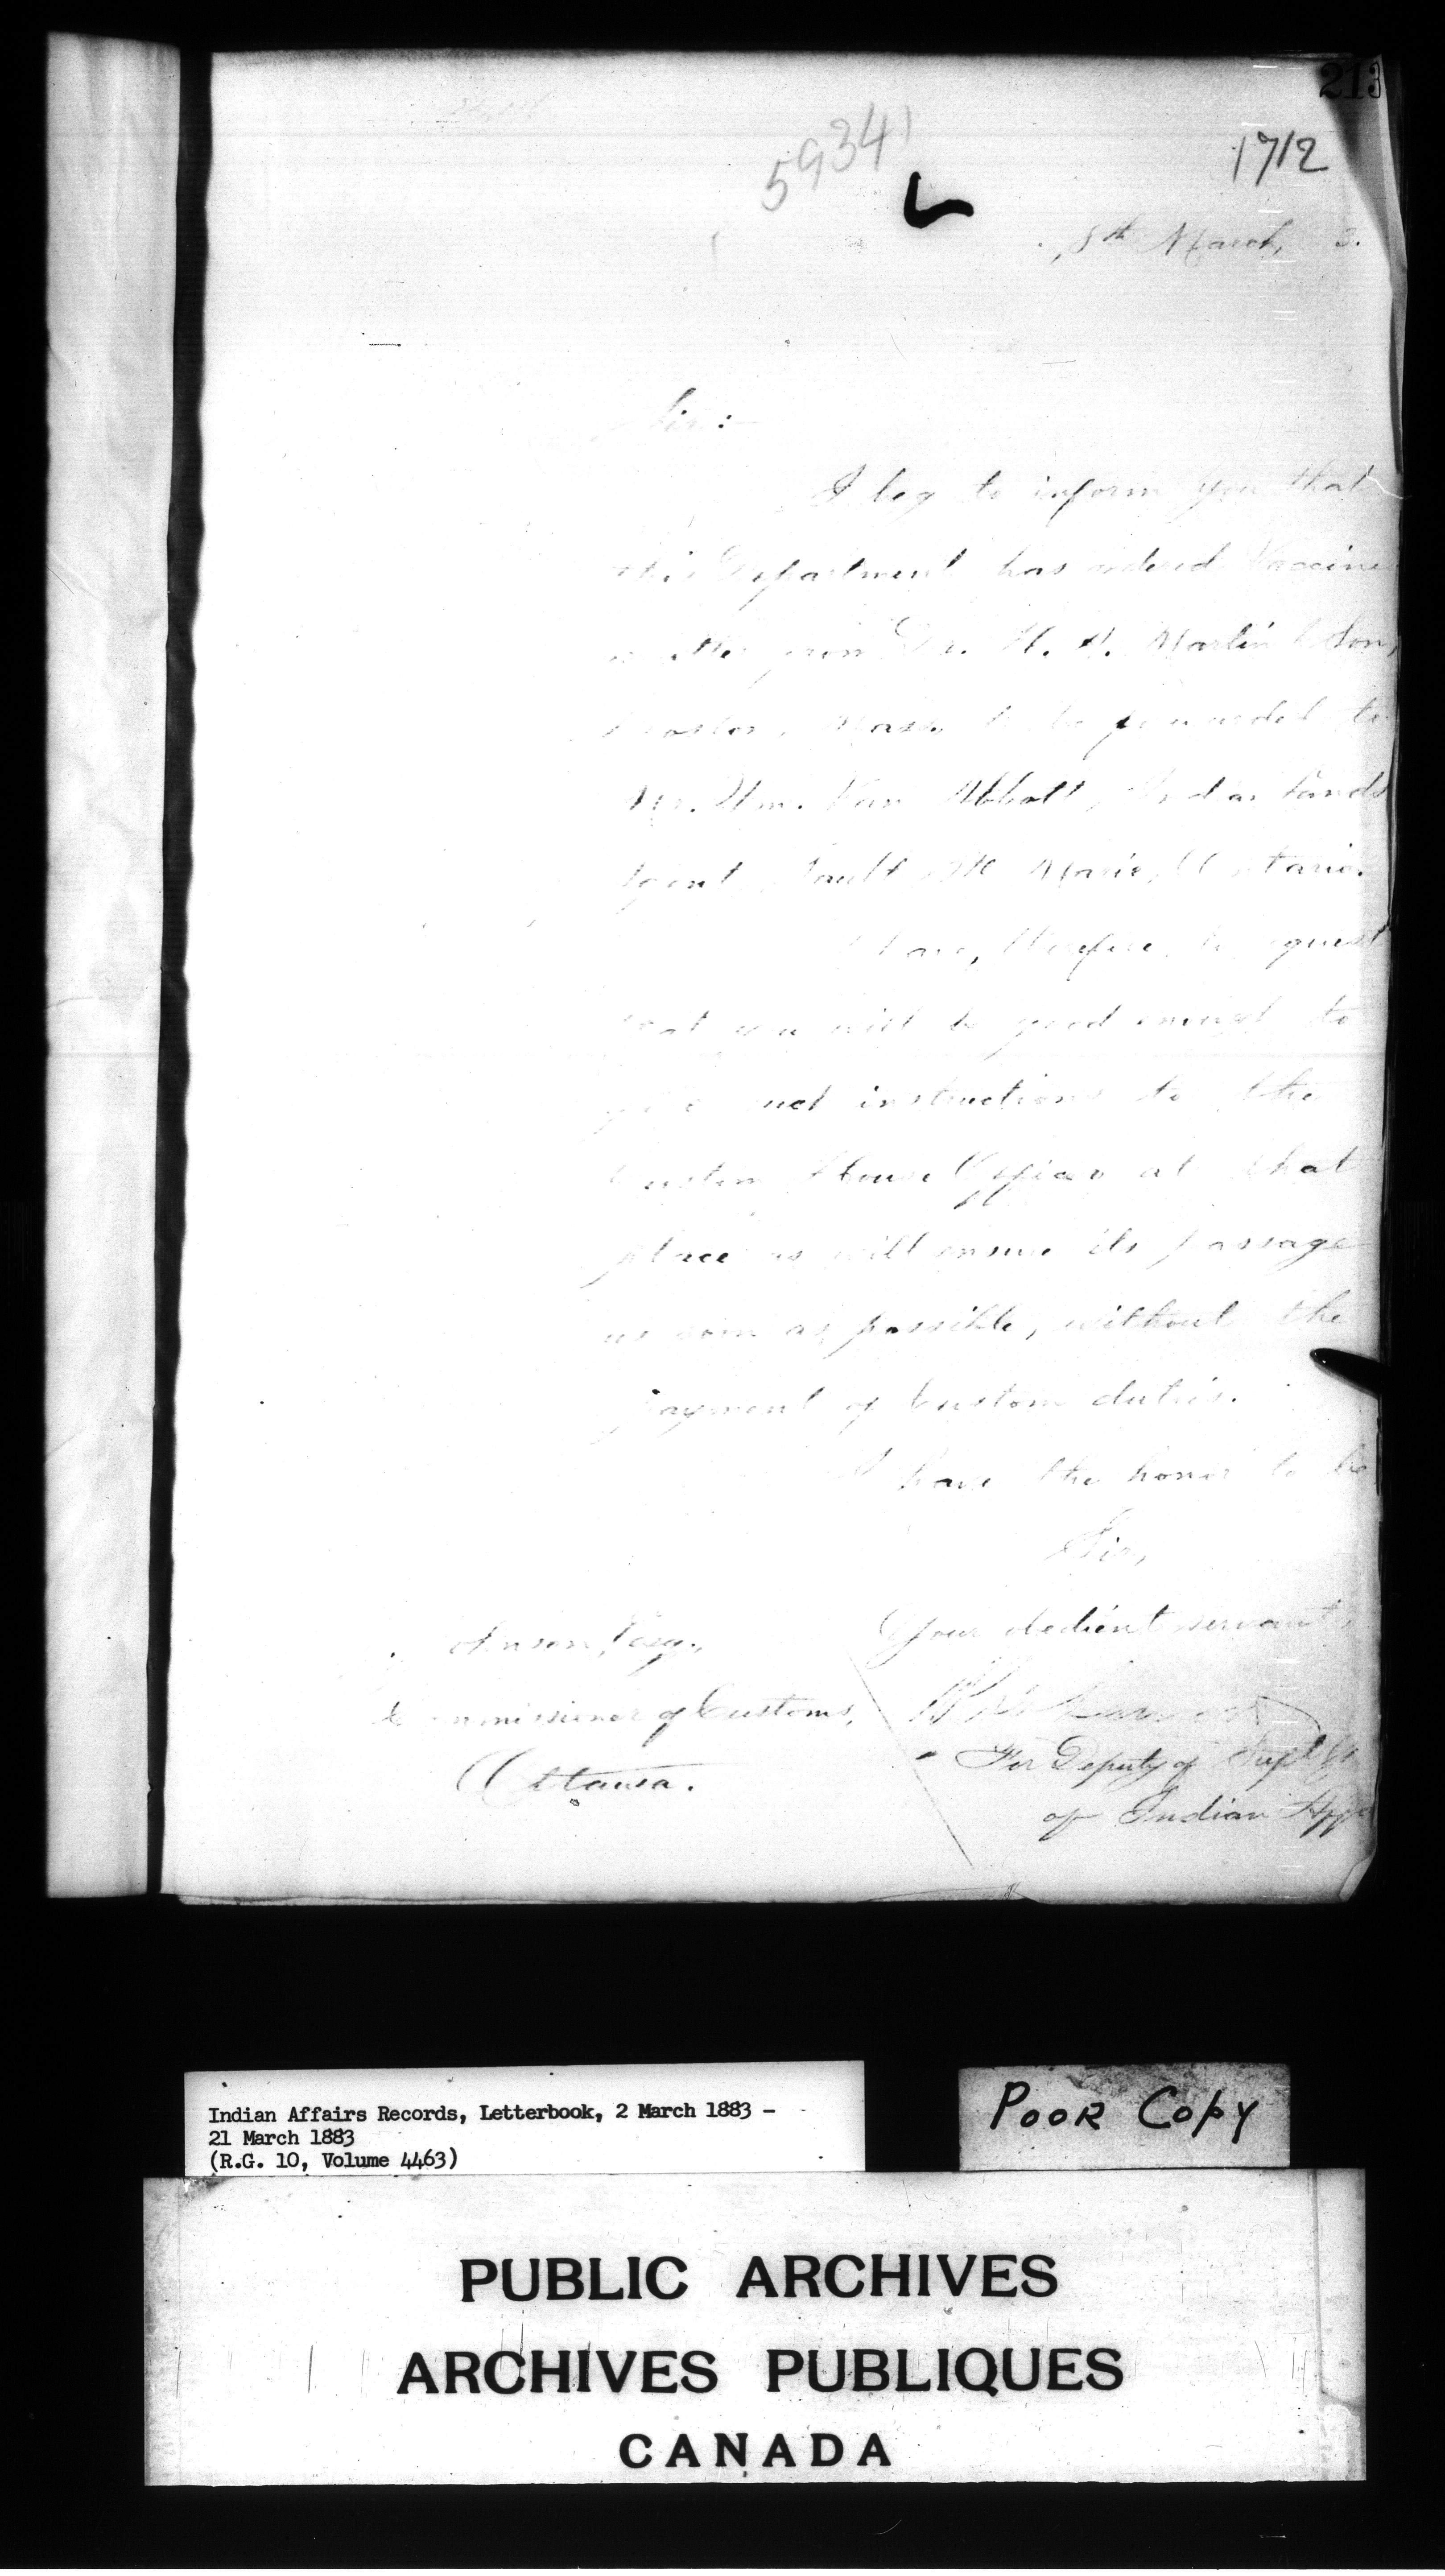 213
5934
1712
8th March, 3.
Sir:-
I beg to inform you that
this Department has ordered Vaccine
matter from Dr. H. A. Martin & Son,
Boston, Mass. to be forwarded to
Mr. Wm. Van Abbott, Indian Lands
Agent, Sault Ste Marie, Ontario.
I have, therefore, to request
that you will be good enough to
give such instructions to the
Custom House Officer at that
place as will ensure its passage
as soon as possible, without the
payment of Custom duties.
I have the honor to be
Sir,
Your obedient servant,
Johnson, Esq.,
Commissioner of Customs,
Ottawa.
For Deputy of Supt Gn
of Indian Affa
Indian Affairs Records, Letterbook, 2 March 1883 -
21 March 1883
(R.G. 10, Volume 4463)
POOR COPY
PUBLIC ARCHIVES
ARCHIVES PUBLIQUES
CANADA